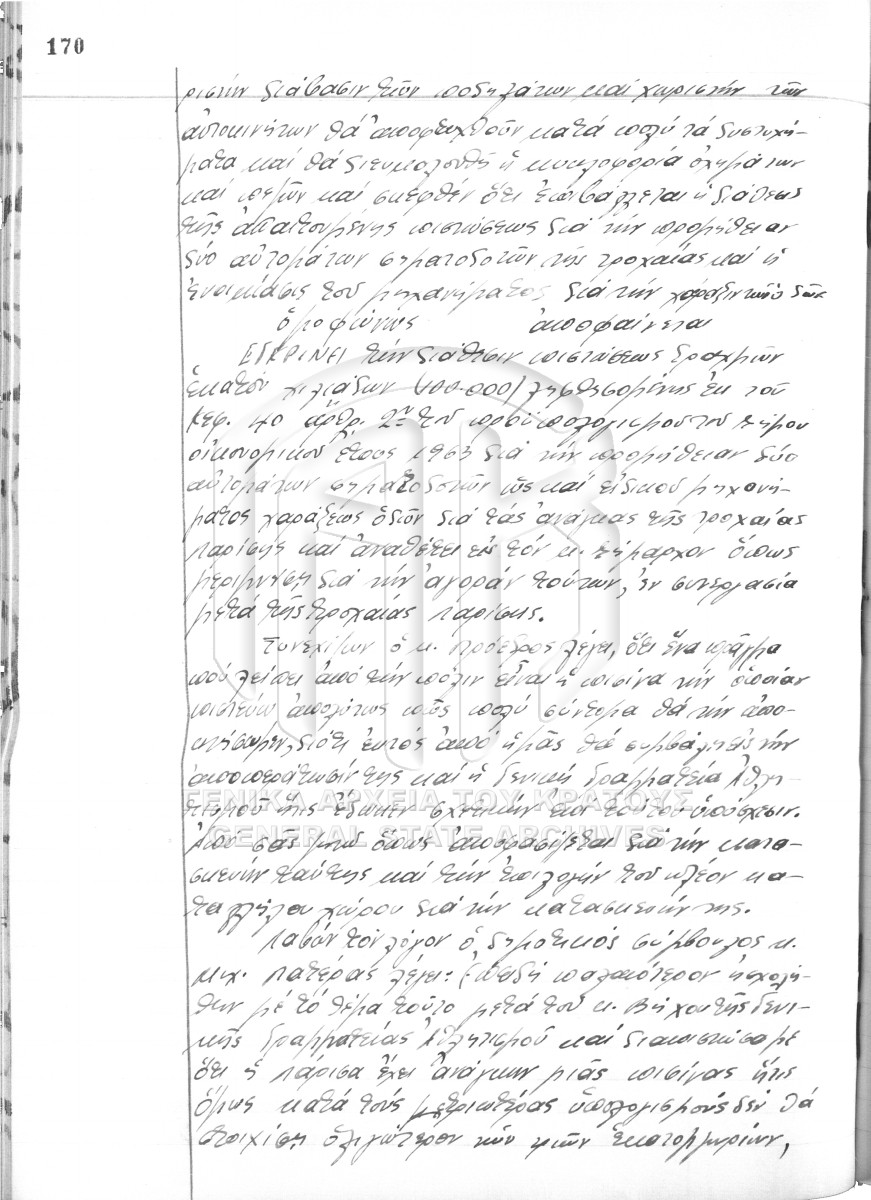 170
ριστήν διάβασιν τῶν ποδηλάτων καί χωριστήν τῶν
αὐτοκινήτων θά ἀποφευχθοῦν κατά πολύ τά δυστυχή-
ματα καί θά διευκολυνθῆ ἡ κυκλοφορία ὀχημάτων
καί πεζῶν καί σκεφθέν ὅτι ἐπιβάλλεται ἡ διάθεσις
τῆς ἀπαιτουμένης πιστώσεως διά τήν προμήθειαν
δύο αὐτομάτων σηματοδοτῶν τῆς τροχαίας καί ἡ
ἐνοικίασις τοῦ μηχανήματος διά τήν χάραξιν τῶν ὁδῶν
ὁμοφώνως ἀποφαίνεται
ΕΓΚΡΙΝΕΙ τήν διάθεσιν πιστώσεως δραχμῶν
ἑκατόν χιλιάδων (100.000) ληφθησομένης ἐκ τοῦ
Κεφ. 40 ἄρθρ. 2ον τοῦ προϋπολογισμοῦ τοῦ Δήμου
οἰκονομικοῦ ἔτους 1963 διά τήν προμήθειαν δύο
αὐτομάτων σηματοδοτῶν ὡς καί εἰδικοῦ μηχανή-
ματος χαράξεως ὁδῶν διά τάς ἀνάγκας τῆς τροχαίας
Λαρίσης καί ἀναθέτει εἰς τόν κ. Δήμαρχον ὅπως
μεριμνήση διά τήν ἀγοράν τούτων, ἐν συνεργασία
μετά τῆς τροχαίας Λαρίσης.
Συνεχίζων ὁ κ. Πρόεδρος λέγει, ὅτι ἕνα πρᾶγμα
πού λείπει ἀπό τήν πόλιν εἶναι ἡ πισίνα τήν ὁποίαν
πιστεύω ἀπολύτως πῶς πολύ σύντομα θά τήν ἀπο-
κτήσωμεν, διότι ἐκτός ἀπό ἡμᾶς θά συμβάλη εἰς τήν
ἀποπεράτωσίν της καί ἡ Γενική Γραμματεία Ἀθλη-
τισμοῦ ἥτις ἔδωκεν σχετικήν ἐπί τούτου ὑπόσχεσιν.
ΓΕΝΙΚΑ ΑΡΧΕΙΑ ΤΟΥ ΚΡΑΤΟΥΣ
GENERAL STATE ARCHIVES
ὅπως ἀποφασίζεται διά τήν κατα-
σκευήν ταύτης καί τήν ἐπιλογήν τοῦ πλέον κα-
ταλλήλου χώρου διά τήν κατασκευήν της.
Λαβών τόν λόγον ὁ δημοτικός σύμβουλος κ.
Μιχ. Πατέρας λέγει: Ἐπειδή παλαιότερον ἠσχολή-
θην μέ τό θέμα τοῦτο μετά τοῦ κ. τῆς Γενι-
κῆς Γραμματείας Ἀθλητισμοῦ καί διαπιστώσαμε
ὅτι ἡ Λάρισα ἔχει ἀνάγκην μιᾶς πισίνας ἥτις
ὅμως κατά τούς μετριωτέρας ὑπολογισμούς δέν θά
στοιχίση ὀλιγώτερον τῶν τριῶν ἑκατομμυρίων,